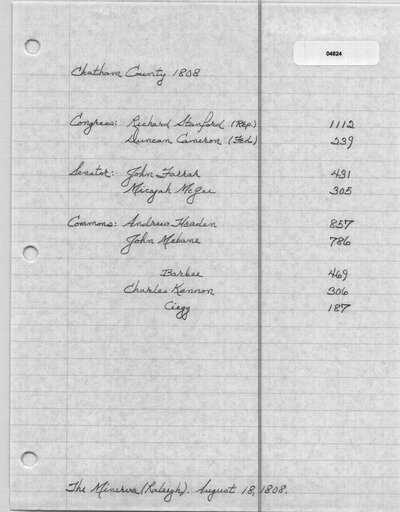 04824
Chatham County 1808
Congress: Richard Stanford (Rep.) 1112
Duncan Cameron (Fed.) 239
Senator: John Farrar 431
Micajah McGee 305
Commons: Andrew Headen 857
John Mebane 786
Barbee 469
Charles Kennon 306
Clegg 187
The Minerva (Raleigh). August 18, 1808.